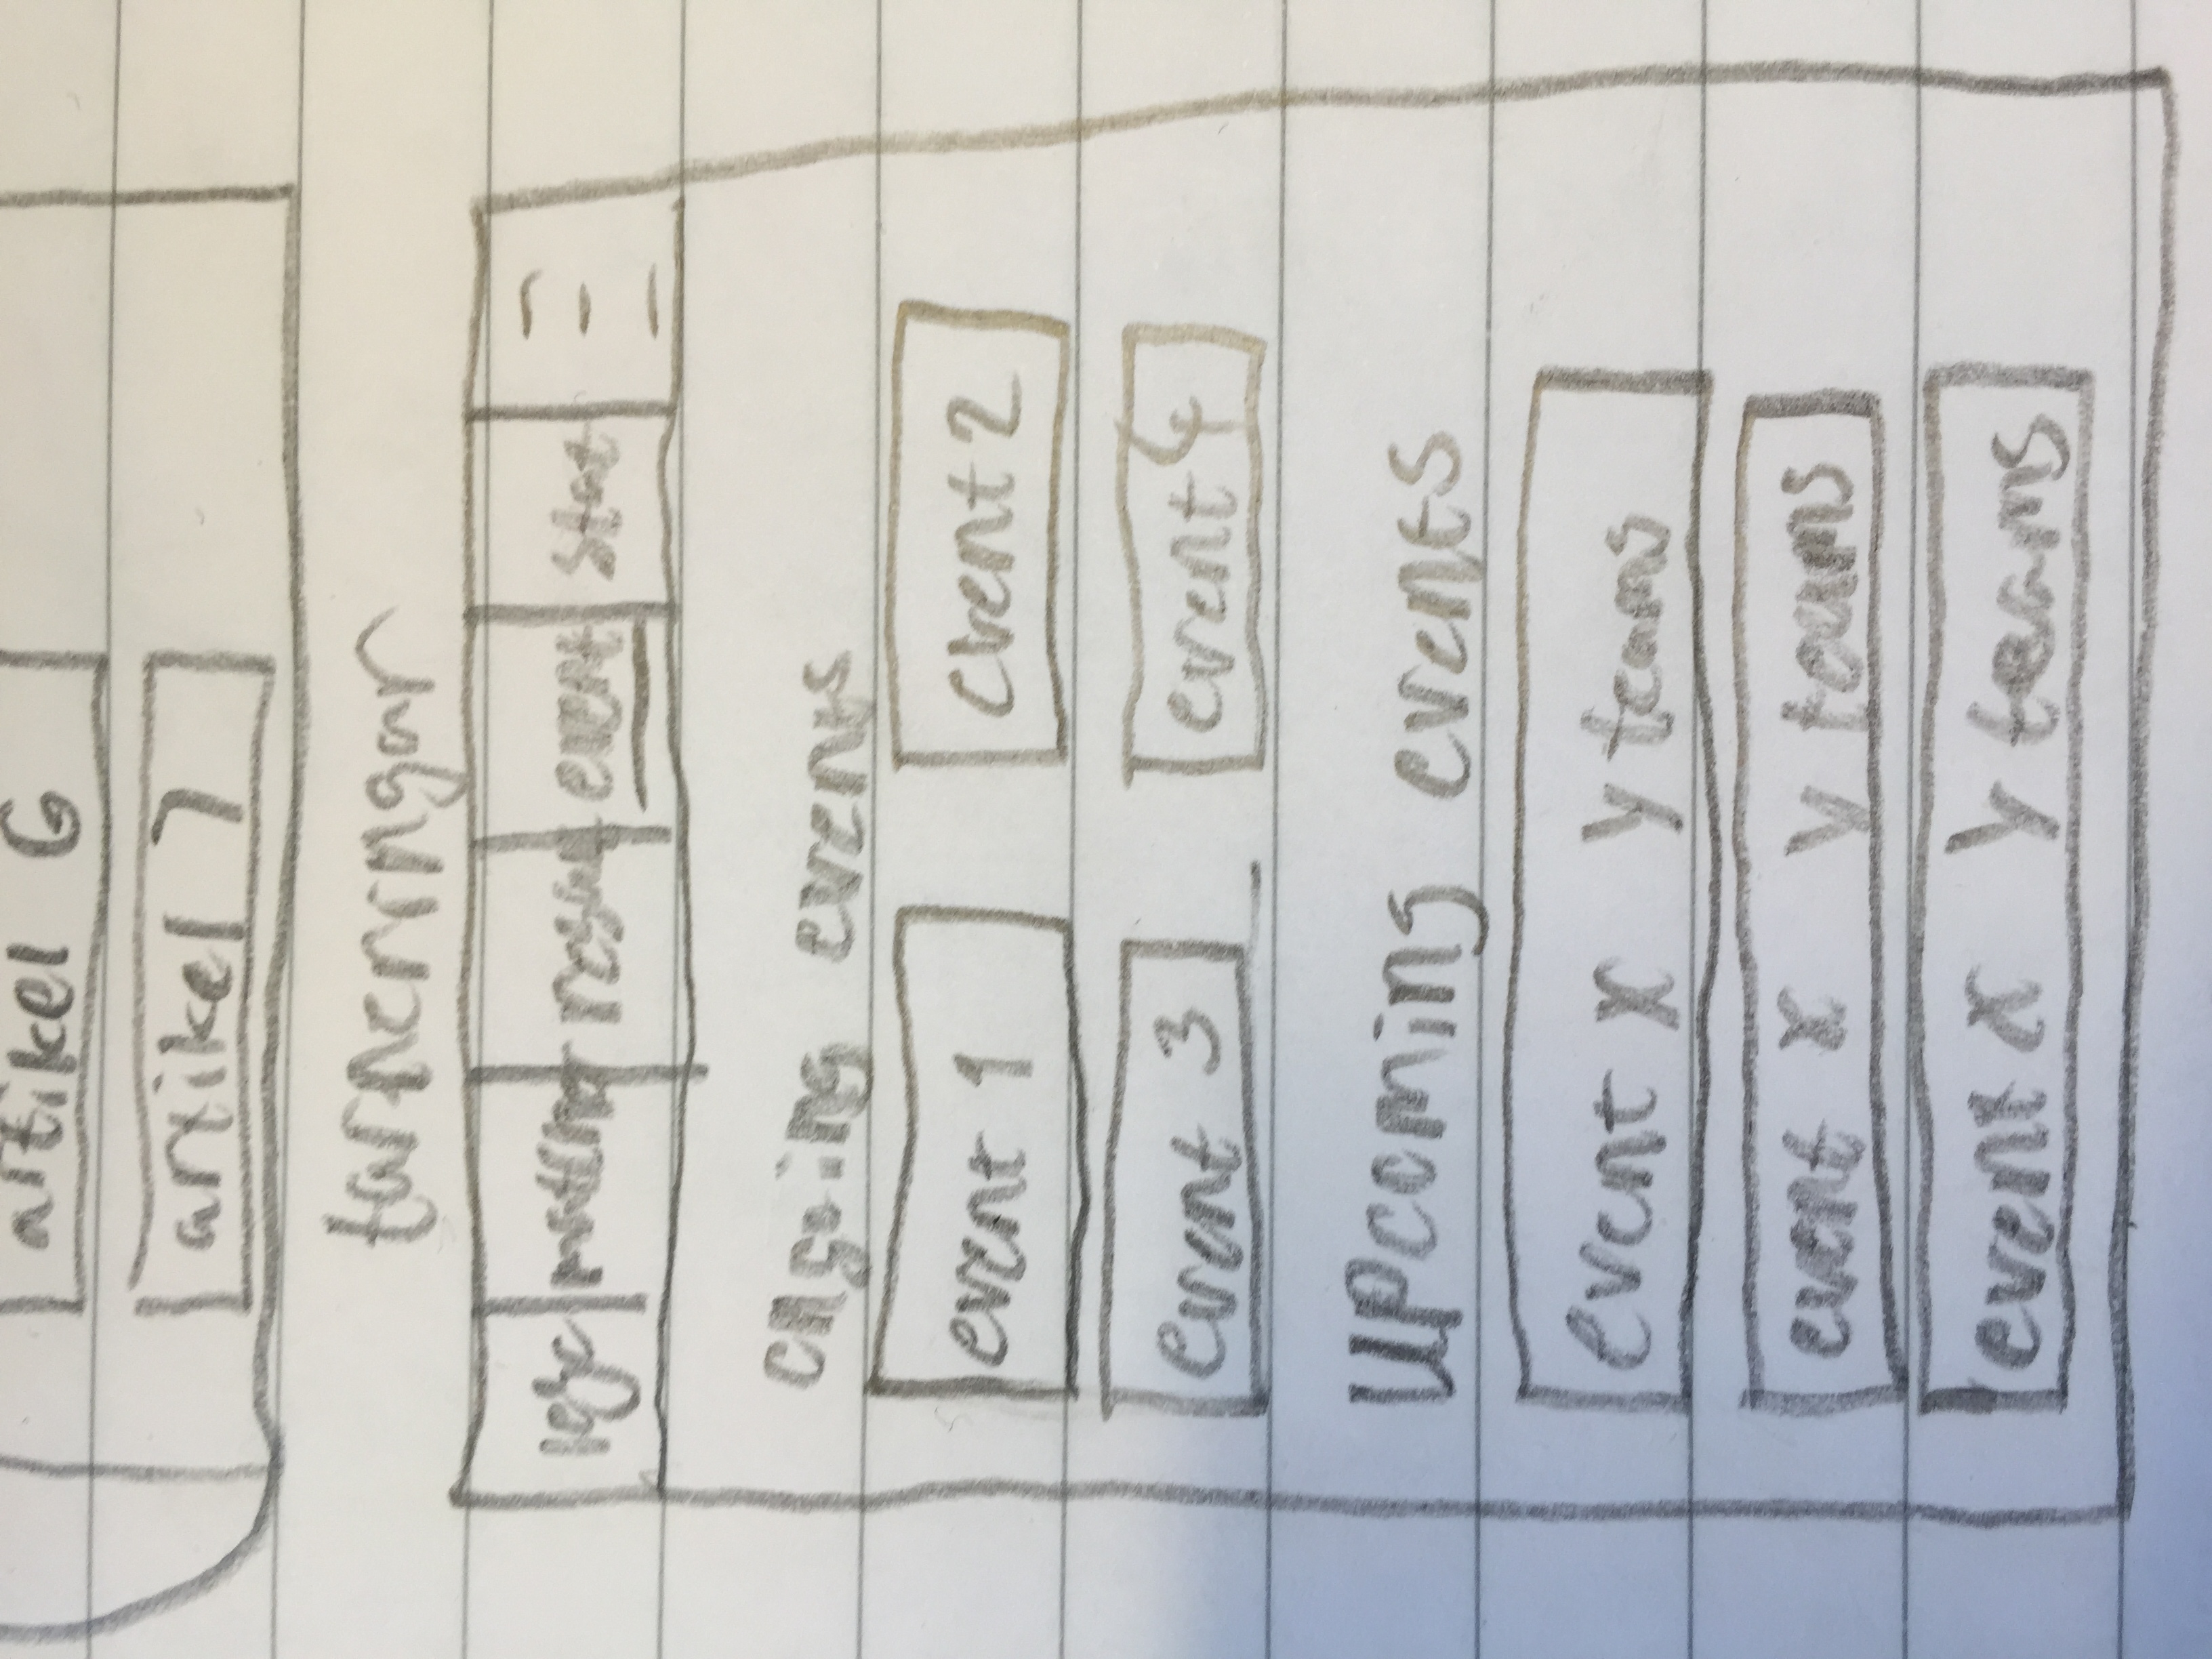 artikel 6
artikel 7
tarneringar
matcher event stat
ongoing events
event 1 event 2
event 3 event 4
Upcoming events
event x y teams
event x y teams
event x y teams